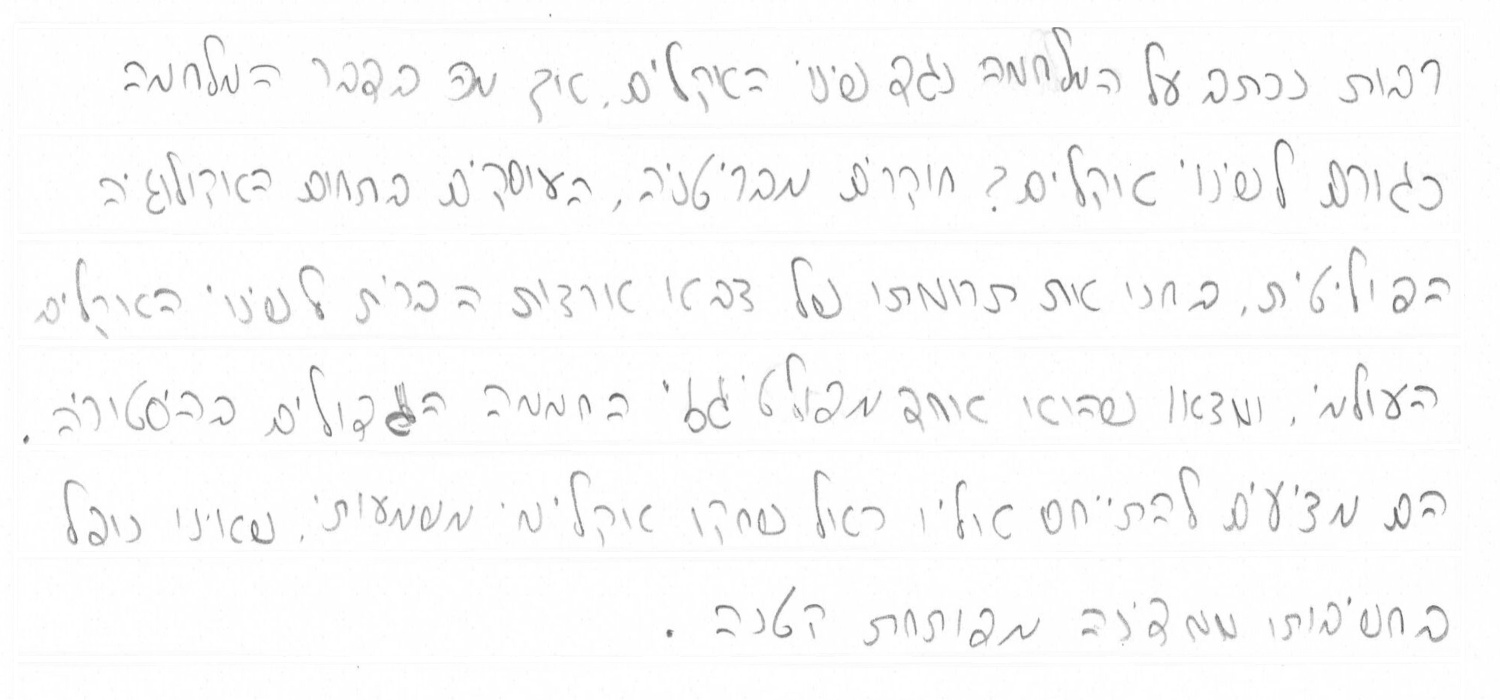 רבות נכתב על המלחמה נגד שינוי האקלים, אך מה בדבר המלחמה
כגורם לשינוי אקלים? חוקרים מבריטניה, העוסקים בתחום האקולוגיה
הפוליטית, בחנו את תרומתו של צבא ארצות הברית לשינוי האקלים
העולמי, ומצאו שהוא אחד מפולטי גזי החממה הגדולים בהיסטוריה.
הם מציעים להתייחס אליו כאל שחקן אקלימי משמעותי, שאינו נופל
בחשיבותו ממדינה מפותחת קטנה.